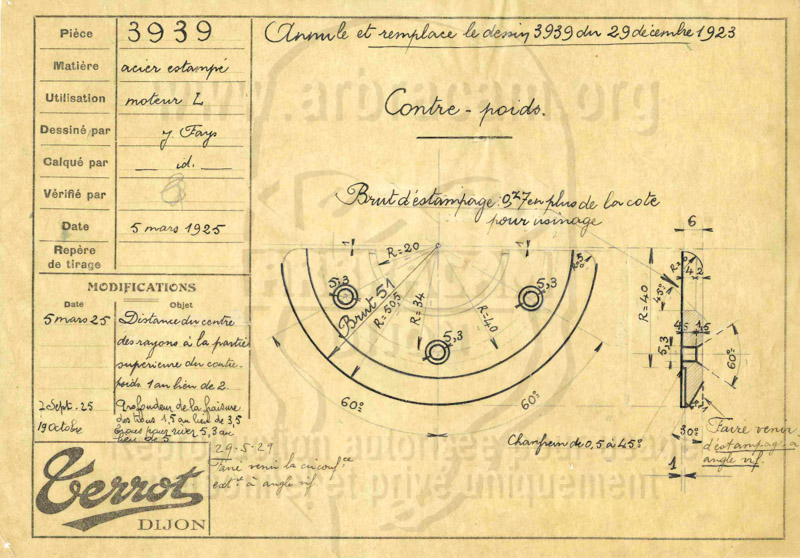 Pièce 3939
Matière acier estampé
Utilisation moteur L
Dessiné par J. Fays
Calqué par id.
Vérifié par
Date 5 mars 1925
Repère
de tirage
MODIFICATIONS
Date Objet
5 mars 25 Distance du centre
des rayons à la partie
supérieure du contre-
poids 1 au lieu de 2.
2 Sept. 25 Profondeur de la fraisure
19 Octobre des trous 1,5 au lieu de 3,5
trous pour river 5,3 au
lieu de 5
29-5-29
Faire venir la circonf.ce
extr à angle vif.
Terrot
DIJON
Annule et remplace le dessin 3939 du 29 décembre 1923
Contre-poids.
Brut d'estampage: 0,7 en plus de la cote
pour usinage
1
R=20
1
5,3
5,3
5,3
Brut 51
R=50,5
R=34
R=40
60°
60°
Chanfrein de 0,5 à 45°
6
4 2
R=40
45°
4,5 1,5
5,3
60°
30°
1
Faire venir
d'estampage à
angle vif.
www.arbracam.org
Reproduction autorisée
et privé uniquement